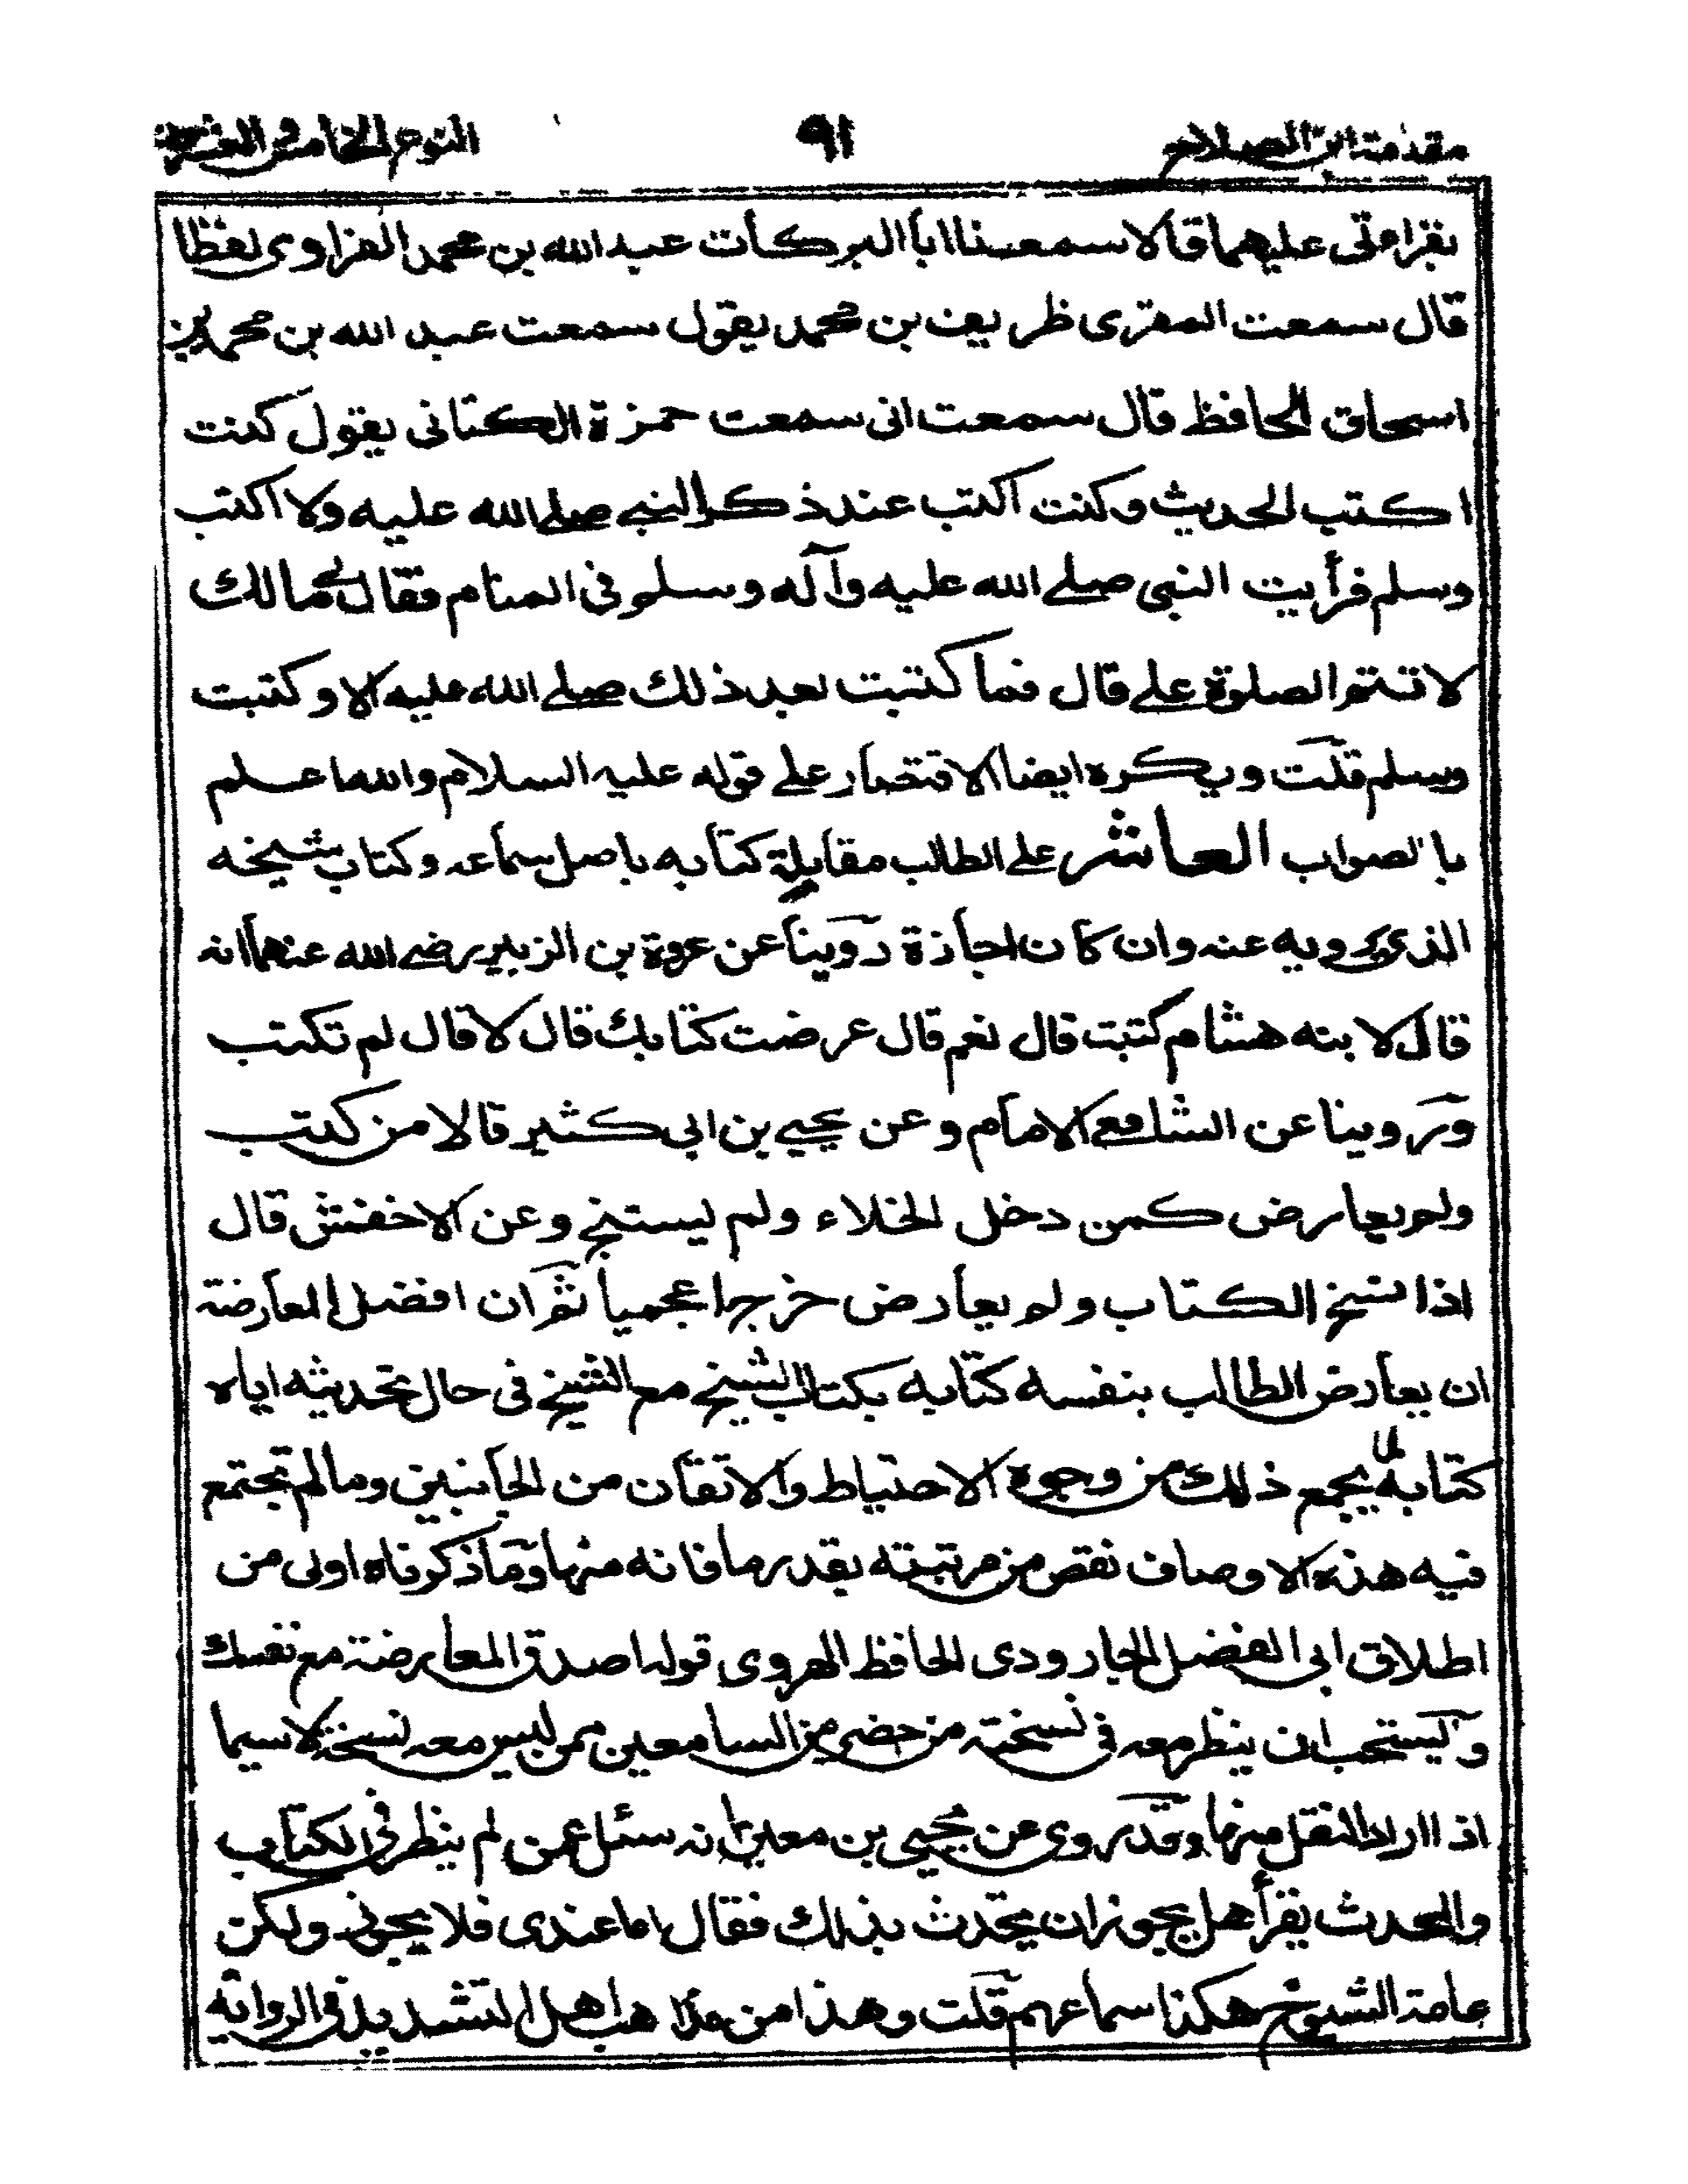 مقدمة ابن الصلاح ٩١ النوع الخامس العشرون
بقراءتي عليهما قالا سمعنا ابا البركات عبد الله بن محمد الفراوي لفظا
قال سمعت المقرى ظريف بن محمد يقول سمعت عبد الله بن محمد بن
اسحاق الحافظ قال سمعت ابى سمعت حمزة الكتانى يقول كنت
اكتب الحديث وكنت اكتب عند ذكر النبي صلے الله عليه ولا اكتب
وسلم فرأيت النبى صلے الله عليه وآله وسلم فى المنام فقال لى مالك
لا تتم الصلوة علے قال فما كتبت بعد ذلك صلے الله عليه الا وكتبت
وسلم قلت ويكره ايضا الاقتصار علے قوله عليه السلام والله اعلم
بالصواب العاشر علے الطالب مقابلة كتابه باصل سماعه وكتاب شيخه
الذى يرويه عنه وان كان اجازة روينا عن عروة بن الزبير رضے الله عنهما انه
قال لابنه هشام كتبت قال نعم قال عرضت كتابك قال لا قال لم تكتب
وروينا عن الشافعے الامام وعن يحيے بن ابى كثير قالا من كتب
ولم يعارض كمن دخل الخلاء ولم يستنج وعن الاخفش قال
اذا نسخ الكتاب ولم يعارض خرج اعجميا ثم ان افضل المعارضة
ان يعارض الطالب بنفسه كتابه بكتاب الشيخ مع الشيخ فى حال تحديثه اياه
كتابه لما يجمع ذلك من وجوه الاحتياط والاتقان من الجانبين وما لم تجتمع
فيه هذه الاوصاف نقص من مرتبته بقدر ما فاته منها وما ذكرناه اولى من
اطلاق ابى الفضل الجارودى الحافظ الهروى قوله اصدق المعارضة مع نفسك
وليستحب ان ينظر معه فى نسخته من حضر من السامعين ممن ليس معه نسخة لاسيما
اذا اراد النقل منها وقد روى عن يحيى بن معين انه سئل عمن لم ينظر فى الكتاب
والمحدث يقرأ هل يجوز ان يحدث بذلك فقال اما عندى فلا يجوز ولكن
عامة الشيوخ هكذا سماعهم قلت وهذا من مذاهب اهل التشديد فى الرواية